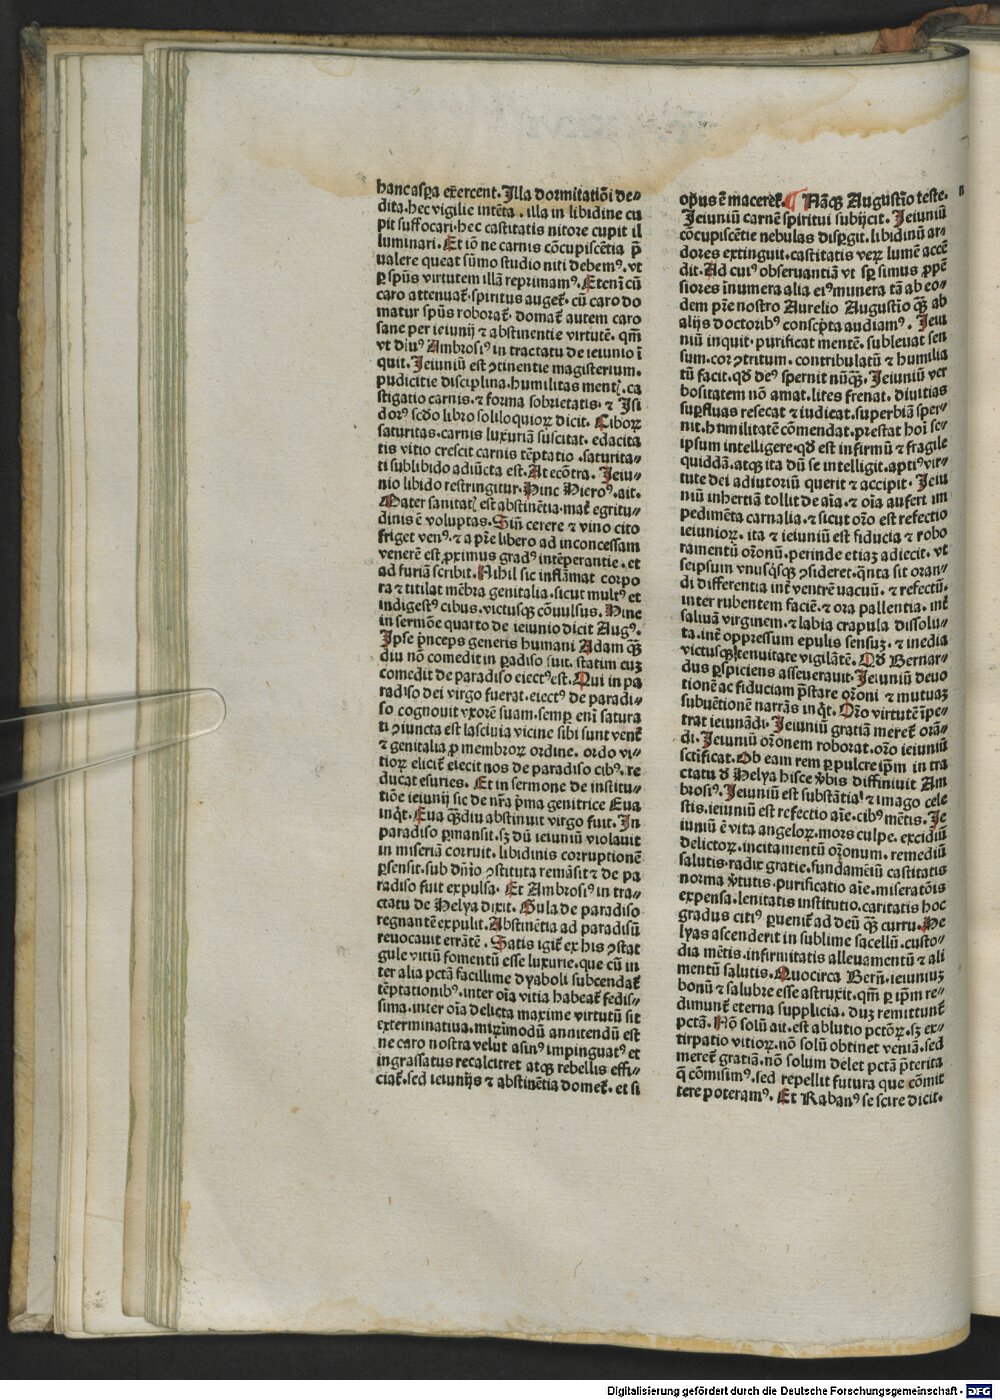 hanc aspa exercent. Illa dormitatiōi de⸗
dita. hec vigilie intēta. illa in libidine cu
pit suffocari. hec castitatis nitore cupit il
luminari. Et iō ne carnis cōcupiscētia p̄
ualere queat sūmo studio niti debemꝰ. vt
ꝑ spūs virtutem illā reprimamꝰ. Eteni̅ cū
caro attenuat̄. spiritus auget̄. cū caro do
matur spūs roborat̄. domat̄ autem caro
sane per ieiunij ⁊ abstinentie virtutē. qm̄
vt diuꝰ Ambrosiꝰ in tractatu de ieiunio ī
quit. Jeiuniū est ꝯtinentie magisterium.
pudicitie disciplina. humilitas mentꝭ. ca
stigatio carnis. ⁊ forma sobrietatis. ⁊ Isi
dorꝰ scdo libro soliloquioꝝ dicit. Ciboꝝ
saturitas. carnis luxuriā suscitat. edacita
tis vitio crescit carnis tēptatio. saturita⸗
ti sublibido adiūcta est. At ecōtra. Jeiu⸗
nio libido restringitur. Hinc Hieroꝰ. ait.
Mater sanitatꝭ est abstinētia. mat̄ egritu⸗
dinis ē voluptas. Siñ cerere ⁊ vino cito
friget venꝰ. ⁊ a pr̄e libero ad inconcessam
venerē est ꝓximus gradꝰ intēperantie. et
ad furiā scribit. Nihil sic inflāmat corpo
ra ⁊ titilat mēbra genitalia. sicut multꝰ et
indigestꝰ cibus. victusqꝫ cōuulsus. Hinc
in sermōe quarto de ieiunio dicit Augꝰ.
Ipse prīceps generis humani Adam qꝫ̄
diu nō comedit in ꝑadiso fuit. statim cuꝫ
comedit de paradiso eiectꝰ est. Qui in pa
radiso dei virgo fuerat. eiectꝰ de paradi⸗
so cognouit vxorē suam. semꝑ eni̅ satura
ti ꝯiuncta est lasciuia vicine sibi sunt vent̄
⁊ genitalia ꝓ membroꝝ ordine. ordo vi⸗
tioꝝ elicit̄ eiecit nos de paradiso cibꝰ. re
ducat esuries. Et in sermone de institu⸗
tiōe ieiunij sic de nr̄a p̄ma genitrice Eua
inqͥt. Eua qꝫ̄diu abstinuit virgo fuit. In
paradiso ꝑmansit. sꝫ dū ieiuniū violauit
in miseriā corruit. libidinis corruptionē
ꝑsensit. sub dn̄io ꝯstituta remāsit ⁊ de pa
radiso fuit expulsa. Et Ambrosiꝰ in tra⸗
ctatu de Helya dixit. Gula de paradiso
regnantē expulit. Abstinētia ad paradisū
reuocauit errātē. Satis igit̄ ex his ꝯstat
gule vitiū fomentū esse luxurie. que cū in
ter alia pctā facillime dyaboli subcendat̄
tēptationibꝰ. inter oīa vitia habeat̄ fedis⸗
sima. inter oīa delicta maxime virtutū sit
exterminatiua. mirūmodū annitendū est
ne caro nostra velut asinꝰ impinguatꝰ et
ingrassatus recalcitret atqꝫ rebellis effi⸗
ciat̄. sed ieiunijs ⁊ abstinētia domet̄. et si
opus ē maceret̄. Nāqꝫ Augustīo teste.
Jeiuniū carnē spiritui subijcit. Jeiuniū
cōcupiscētie nebulas disꝑgit. libidinū ar⸗
dores extinguit. castitatis veꝝ lumē accē
dit. Ad cuiꝰ obseruantiā vt sꝑ simus ꝓpē
siores īnumera alia eiꝰ munera tā ab eo⸗
dem pr̄e nostro Aurelio Augustīo qꝫ̄ ab
alijs doctoribꝰ conscp̄ta audiamꝰ. Jeiu
niū inquit. purificat mentē. subleuat sen
sum. cor ꝯtritum. contribulatū ⁊ humilia
tū facit. qd̄ deꝰ spernit nūqꝫ̄. Jeiuniū ver
bositatem nō amat. lites frenat. diuitias
suꝑfluas resecat ⁊ iudicat. superbiā sper⸗
nit. humilitatē cōmendat. prestat hoi̅ se⸗
ipsum intelligere. qd̄ est infirmū ⁊ fragile
quiddā. atqꝫ ita dū se intelligit. aptiꝰ vir⸗
tute dei adiutoriū querit ⁊ accipit. Jeiu
niū inhertiā tollit de aīa. ⁊ oīa aufert im
pedimēta carnalia. ⁊ sicut or̄o est refectio
ieiunioꝝ. ita ⁊ ieiuniū est fiducia ⁊ robo
ramentū or̄onū. perinde etiaꝫ adiecit. vt
seipsum vnusqͥsqꝫ ꝯsideret. qn̄ta sit oran⸗
di differentia int̄ ventrē vacuū. ⁊ refectū.
inter rubentem faciē. ⁊ ora pallentia. int̄
saliuā virginem. ⁊ labia crapula dissolu⸗
ta. int̄ oppressum epulis sensuꝫ. ⁊ inedia
victusqꝫ tenuitate vigilātē. Qd̄ Bernar⸗
dus ꝑspiciens asseuerauit. Jeiuniū deuo
tionē ac fiduciam p̄stare or̄oni ⁊ mutuaꝫ
subuētionē narrās inqͥt. Or̄o virtutē īpe⸗
trat ieiunādi. Jeiuniū gratiā meret̄ orā⸗
di. Jeiuniū or̄onem roborat. or̄o ieiuniū
sctīficat. Ob eam rem ꝑpulcre ip̄m in tra
ctatu d̄ Helya hisce v̄bis diffiniuit Am
brosiꝰ. Jeiuniū est substātia ⁊ imago cele
stis. ieiuniū est refectio aīe. cibꝰ mētis. Je
iuniū ē vita angeloꝝ. mors culpe. excidiū
delictoꝝ. incitamentū or̄onum. remediū
salutis. radix gratie. fundamētū castitatis
norma v̄tutis. purificatio aīe. miseratōis
expensa. lenitatis institutio. caritatis hoc
gradus citiꝰ ꝑuenit̄ ad deū qꝫ̄ curru. He
lyas ascenderit in sublime sacellū. custo⸗
dia mētis. infirmitatis alleuamentū ⁊ ali
mentū salutis. Quocirca Bern̄. ieiuniuꝫ
bonū ⁊ salubre esse astruxit. qm̄ ꝑ ip̄m re⸗
dimunt̄ eterna supplicia. duꝫ remittunt̄
pctā. Nō solū ait. est ablutio pctōꝝ. sꝫ ex⸗
tirpatio vitioꝝ. nō solū obtinet veniā. sed
meret̄ gratiā. nō solum delet pctā p̄terita
q̄ cōmisimꝰ. sed repellit futura que cōmit
tere poteramꝰ. Et Rabanꝰ se scire dicit.
Digitalisierung gefördert durch die Deutsche Forschungsgemeinschaft - DFG